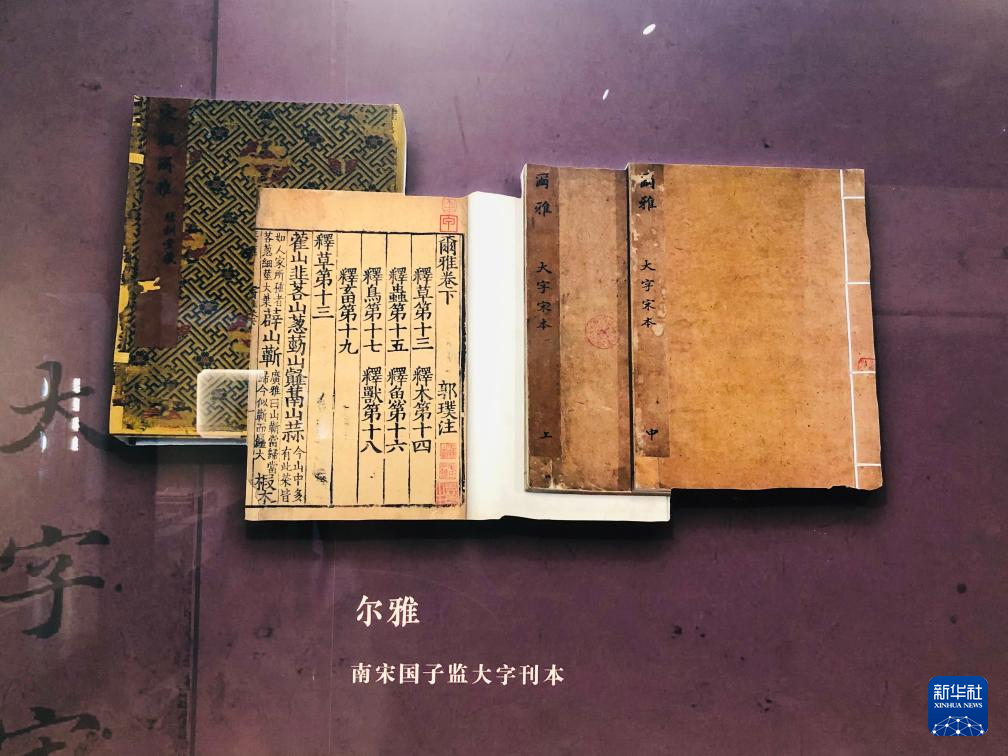 爾雅
爾雅卷下 郭璞注
釋草第十三 釋木第十四
釋蟲第十五 釋魚第十六
釋鳥第十七 釋獸第十八
釋畜第十九
釋草第十三
藿山韭茖山葱葝山䪥蒚山蒜 今山中多有此菜皆
如人家所種者茖葱細莖大葉 薜山蘄 廣雅曰山蘄當歸當歸今似蘄而麤大 椵木
爾雅 大字宋本 上
爾雅 大字宋本 中
大字
尔雅
南宋国子监大字刊本
新华社
XINHUA NEWS